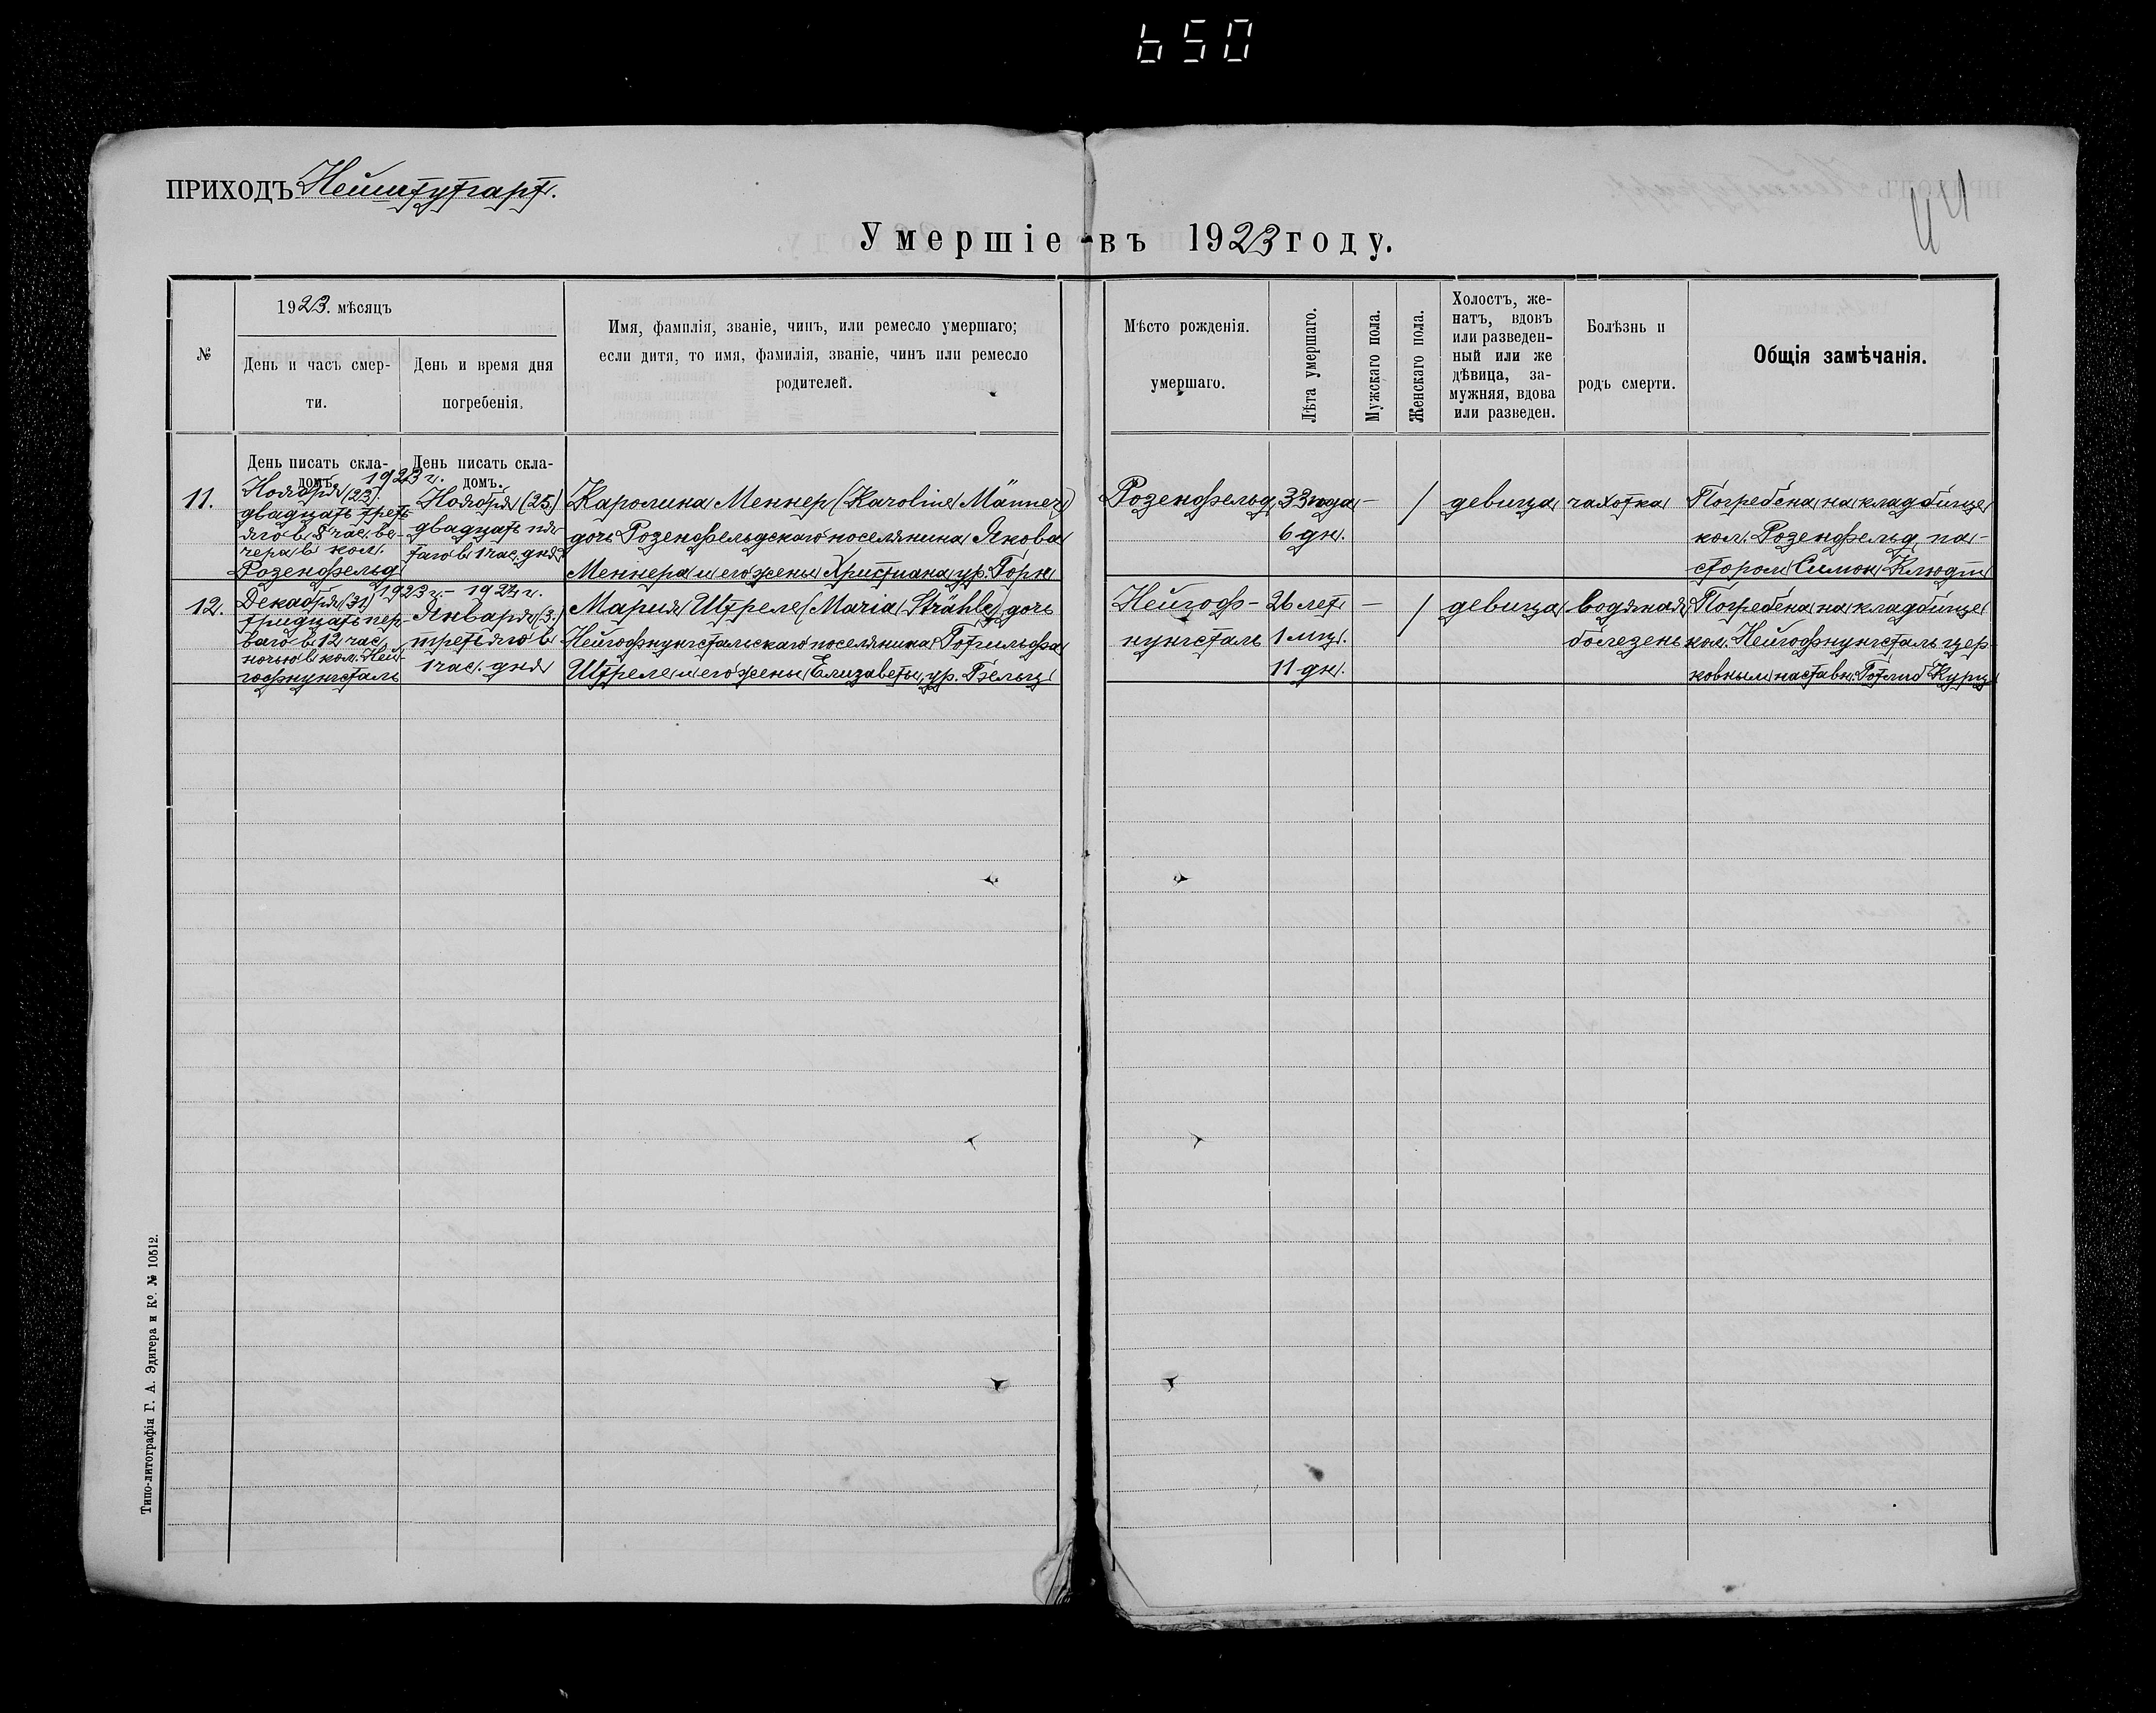 650
ПРИХОДЪ Нейштутгарт.
44
Умершіе въ 1923 году.
№
1923. мѣсяцъ
День и часъ смер-
ти.
День и время дня
погребенія.
Имя, фамилія, званіе, чинъ, или ремесло умершаго;
если дитя, то имя, фамилія, званіе, чинъ или ремесло
родителей.
Мѣсто рожденія.
умершаго.
Лѣта умершаго.
Мужскаго пола.
Женскаго пола.
Холостъ, же-
натъ, вдовъ
или разведен-
ный или же
дѣвица, за-
мужняя, вдова
или разведен.
Болѣзнь и
родъ смерти.
Общія замѣчанія.
День писать скла-
домъ.
День писать скла-
домъ.
11.
1923 г.
Ноября (23)
двадцать треть-
яго в 8 час. ве-
чера в кол.
Розенфельд
Ноября (25.)
двадцать пя-
таго в 1 час. дня
Каролина Меннер (Karoline Männer)
дочь Розенфельдскаго поселянина Якова
Меннера и его жены Христиана ур. Горн
Розенфельд
33 года
6 дн.
—
/
девица
чахотка
Погребена на кладбище
кол. Розенфельд, па-
стором Симон Клюдт
12.
1923 г. – 1924 г.
Декабря (31)
тридцать пер-
ваго в 12 час.
ночью в кол. Ней-
гофнунгсталь
Января (3.)
третьяго в
1 час. дня
Мария Штреле (Maria Strähle), дочь
Нейгофнунгстальскаго поселянина Готгильфа
Штреле и его жены Елизаветы, ур. Бельц
Нейгоф-
нунгсталь
26 лет
1 мц.
11 дн.
—
/
девица
водяная
болезень
Погребена на кладбище
кол. Нейгофнунгсталь цер-
ковным наставн. Готлиб Курц
Типо-литографія Г. А. Эдигера и Ко. № 10512.